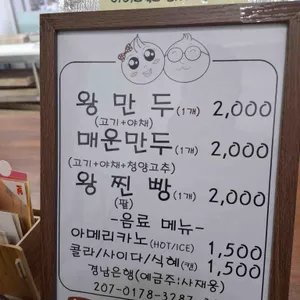 왕만두(1개) 2,000
(고기+야채)
매운만두(1개) 2,000
(고기+야채+청양고추)
왕찐빵(1개) 2,000
(팥)
-음료 메뉴-
아메리카노(HOT/ICE) 1,500
콜라/사이다/식혜(캔) 1,500
경남은행(예금주:사재용)
207-0178-3287